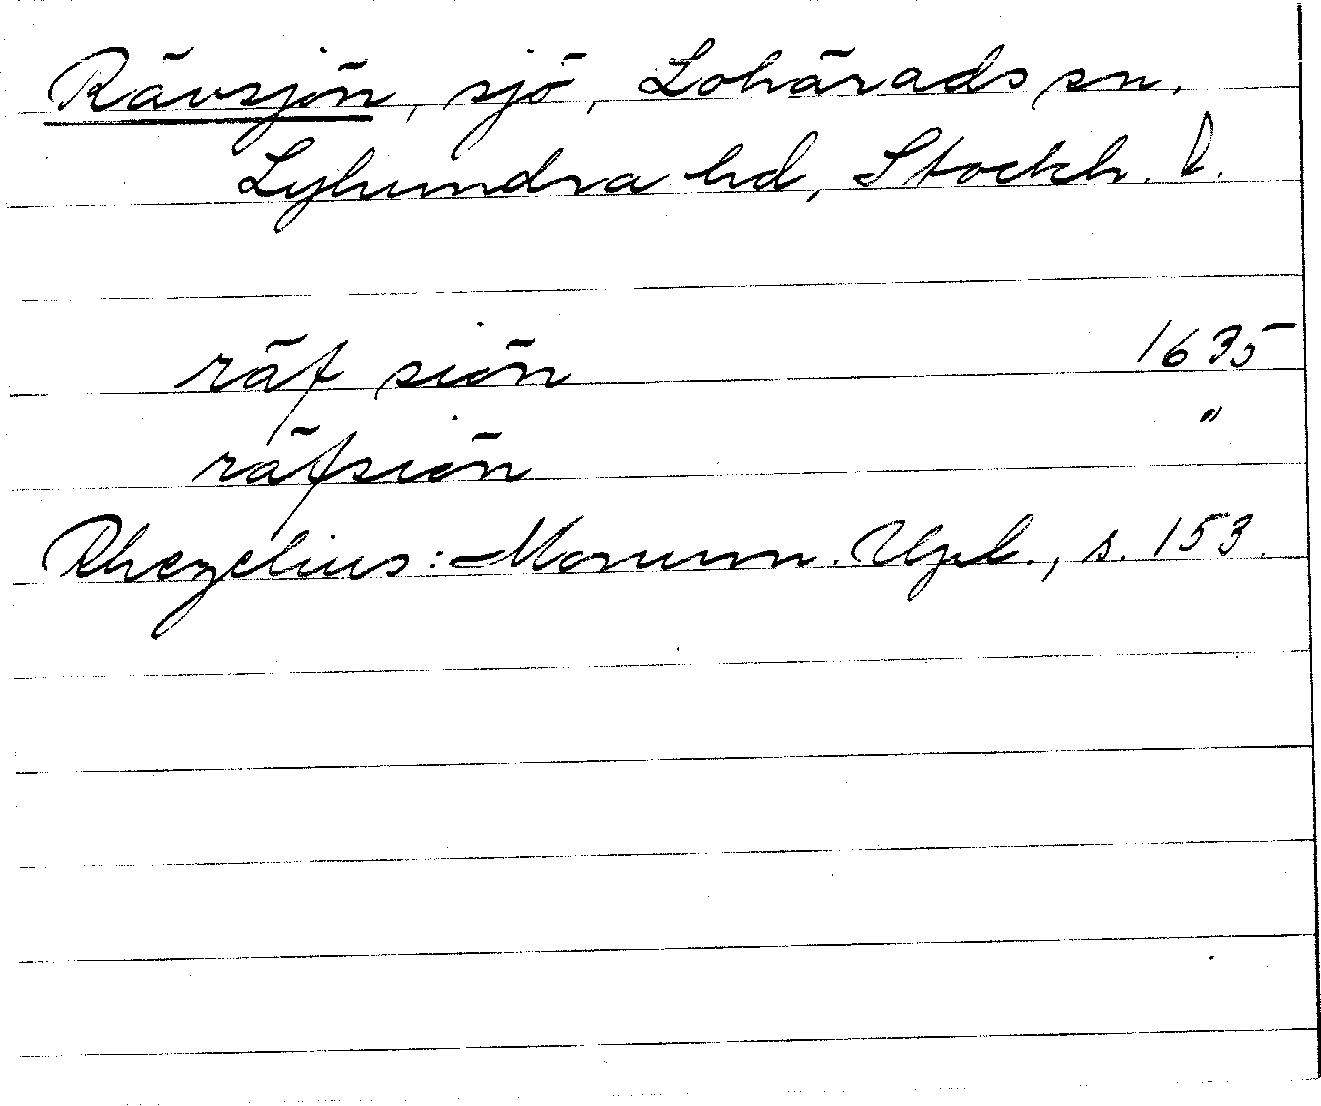 Rävsjön, sjö, Lohärads sn.
Lyhundra hd, Stockh. l.
räf siön 1635
räfsiön "
Rhezelius: Monum. Upl., s. 153.